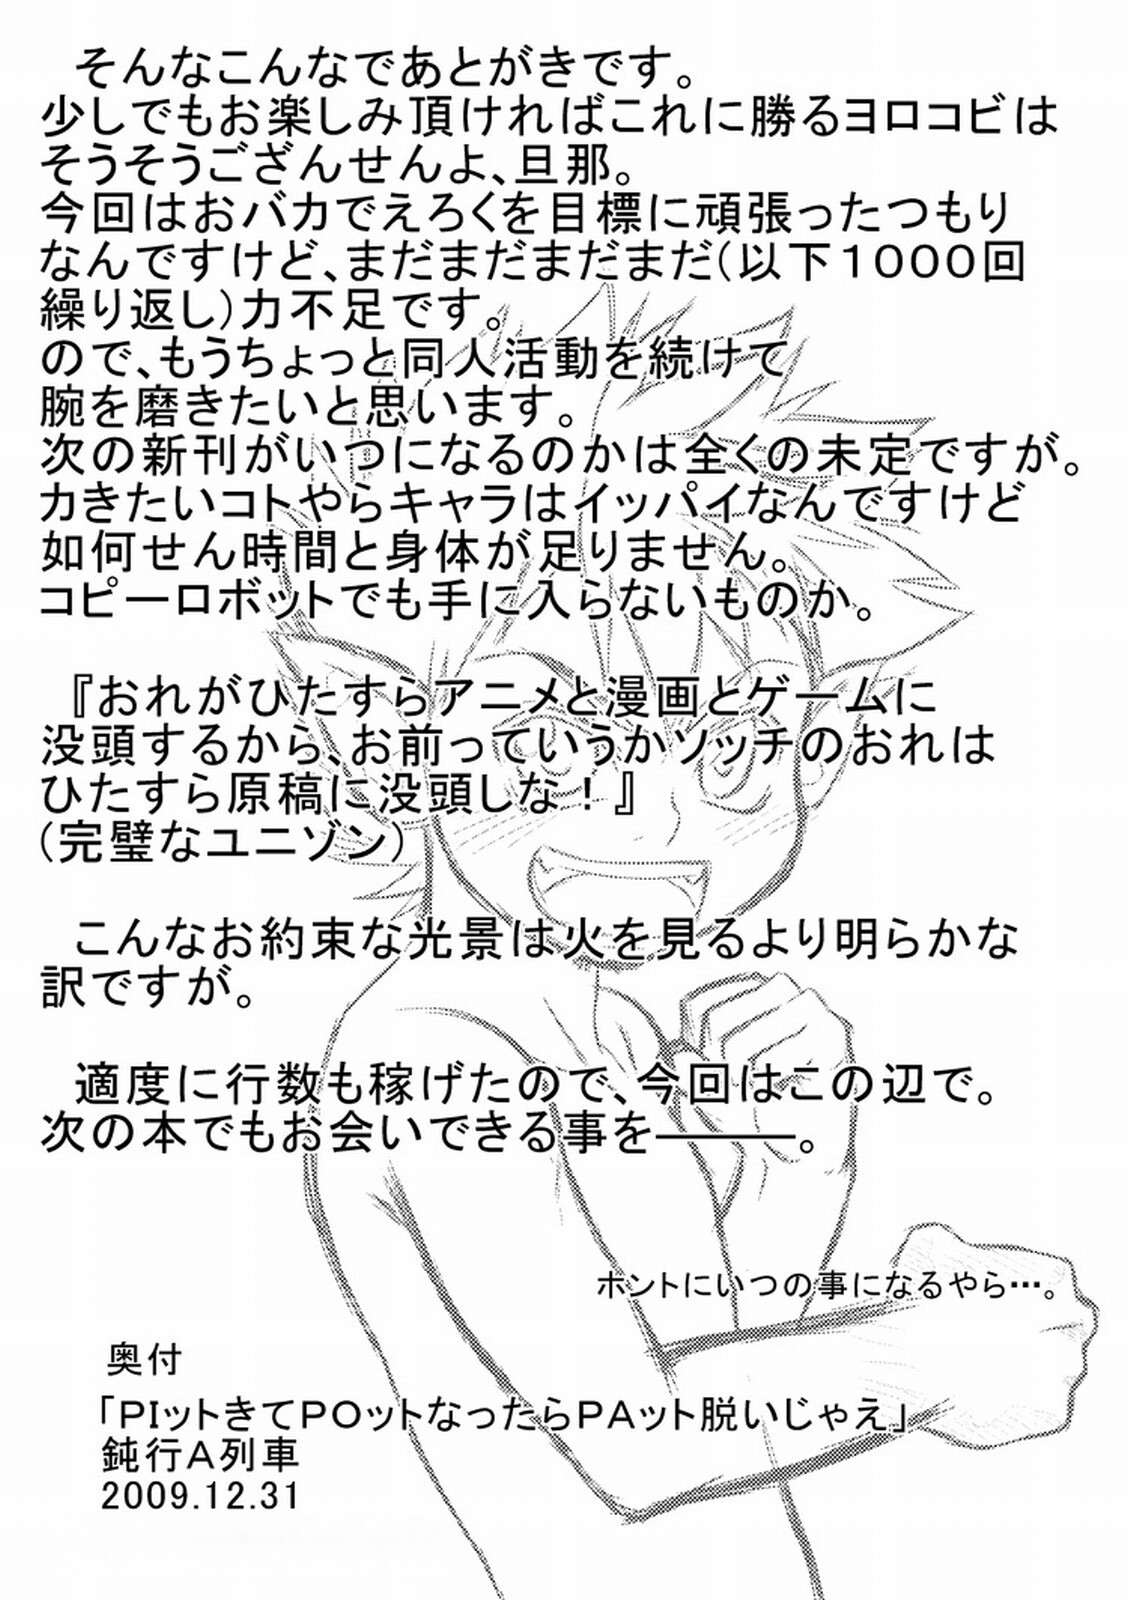 そんなこんなであとがきです。
少しでもお楽しみ頂ければこれに勝るヨロコビは
そうそうござんせんよ、旦那。
今回はおバカでえろくを目標に頑張ったつもり
なんですけど、まだまだまだまだ(以下１０００回
繰り返し)力不足です。
ので、もうちょっと同人活動を続けて
腕を磨きたいと思います。
次の新刊がいつになるのかは全くの未定ですが。
カきたいコトやらキャラはイッパイなんですけど
如何せん時間と身体が足りません。
コピーロボットでも手に入らないものか。
『おれがひたすらアニメと漫画とゲームに
没頭するから、お前っていうかソッチのおれは
ひたすら原稿に没頭しな！』
(完璧なユニゾン)
こんなお約束な光景は火を見るより明らかな
訳ですが。
適度に行数も稼げたので、今回はこの辺で。
次の本でもお会いできる事を―――。
ホントにいつの事になるやら…。
奥付
「ＰＩットきてＰＯットなったらＰＡット脱いじゃえ」
鈍行Ａ列車
2009.12.31